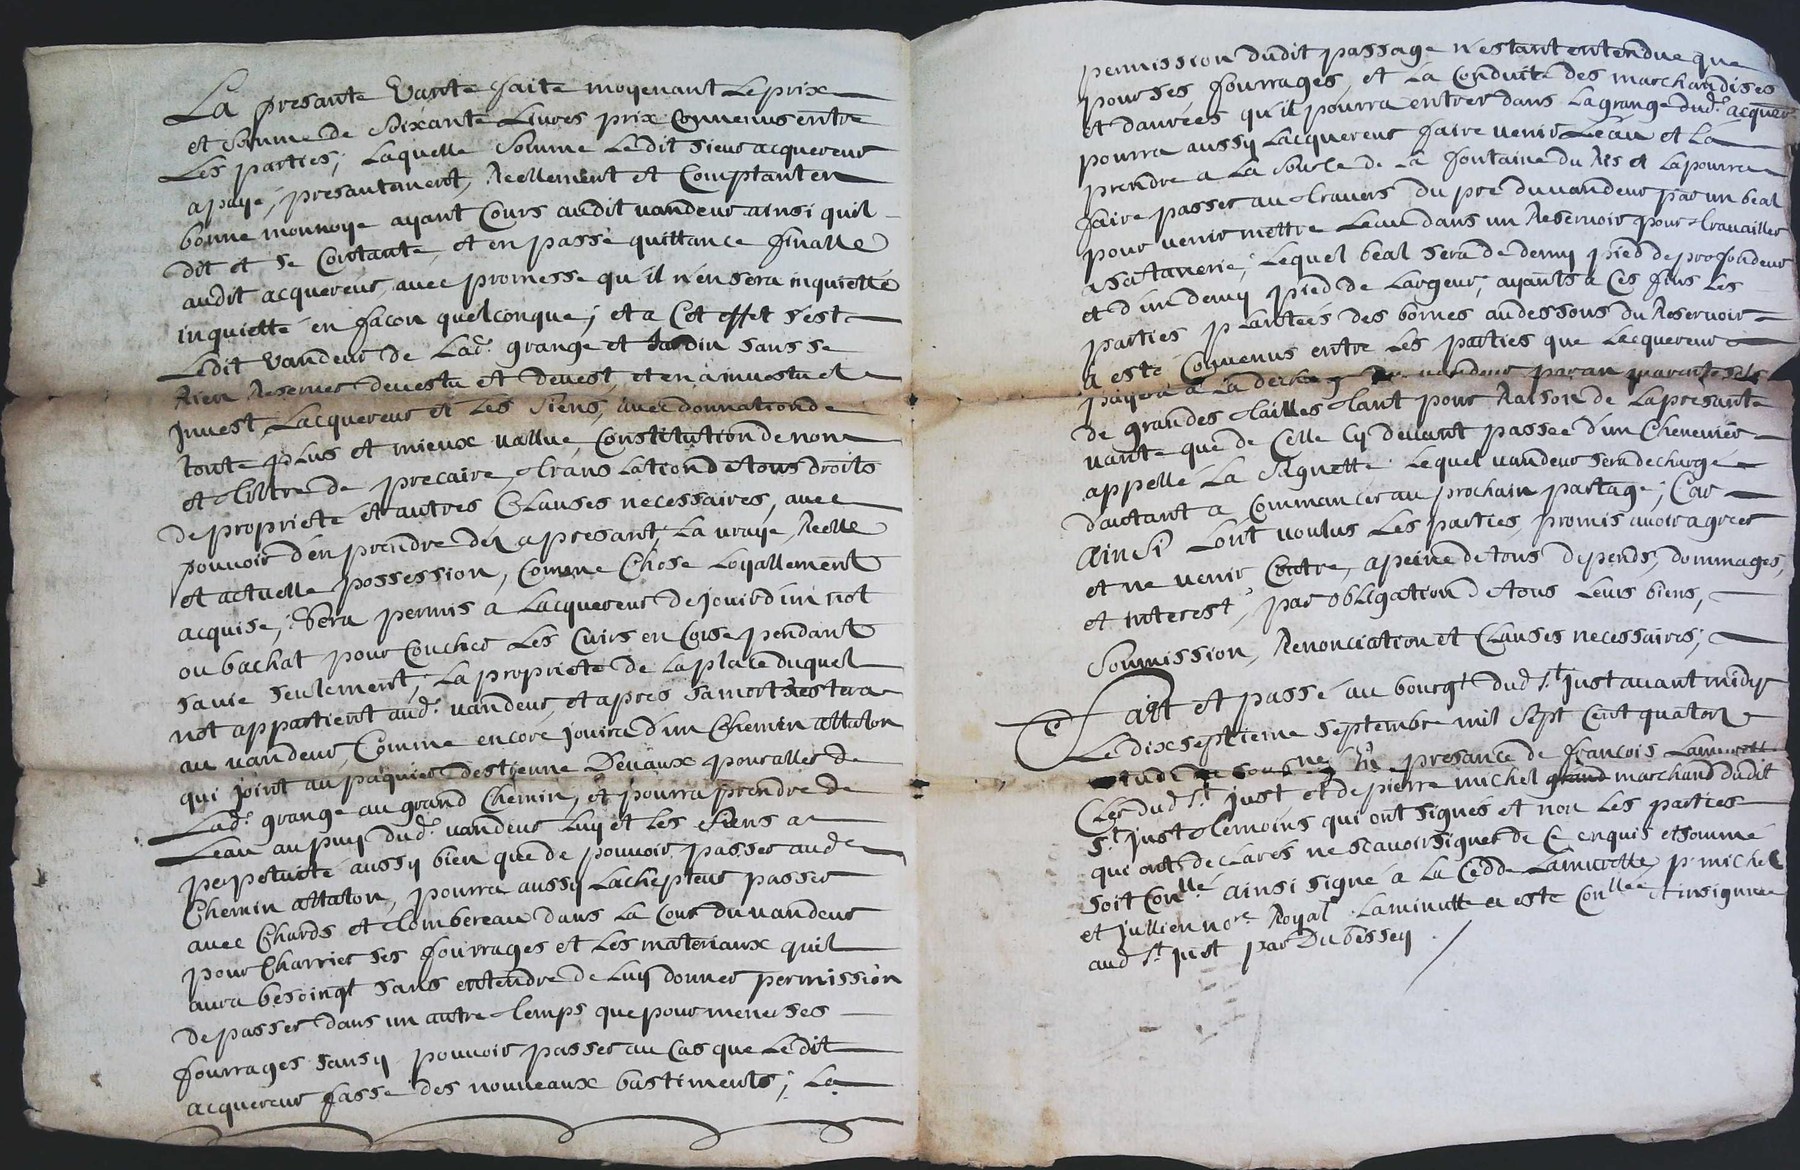 La presante vante faite moyenant le prix
et somme de soixante livres prix convenus entre
les parties; laquelle somme ledit sieur acquereur
a payé, presantement, reellement et comptant en
bonne monnoye ayant cours audit vandeur ainsi quil
dit et se contante, et en passé quittance finalle
audit acquereur avec promesse qu'il n'en sera inquietté
inquietté en facon quelconque; et a cet effet s'est
ledit vandeur de lad. grange et jardin sans se
rien reserver devestu et devest, et en a investu et
invest lacquereur et les siens, avec donnation de
toute plus et mieux vallue constitution de nom
et tiltre de precaire translation de tous droits
de proprieté et autres clauses necessaires, avec
pouvoir d'en prendre dez a presant, la vraye, reelle
et actuelle possession, comme chose loyallement
acquise; sera permis a lacquereur de jouir d'un not
ou bachat pour coucher les cuirs en cose pendant
sa vie seulement; la proprieté de la place duquel
not appartient aud. vandeur, et apres sa mort restera
au vandeur, comme encore jouira d'un chemin attalon
qui joint au paquier destienne Devaux pour aller de
lad. grange au grand chemin, et pourra prendre de
leau au puy dud. vandeur luy et les siens a
perpetuité aussy bien que de pouvoir passer aud.
chemin attalon, pourra aussy lachepteur passer
avec chards et tombereau dans la cour du vandeur
pour charrier ses fourrages et les materiaux quil
aura besoingt sans entendre de luy donner permission
de passer dans un autre temps que pour mener ses
fourrages sans y pouvoir passer au cas que ledit
acquereur fasse des nouveaux bastiments; la
permission dudit passage n'estant entendue que
pour ses fourrages, et la conduite des marchandises
et danrées qu'il pourra entrer dans la grange dud. acquer
pourra aussy lacquereur faire venir l'eau et la
prendre a la source de la fontaine du Res et la pourra
faire passer au travers du pré du vandeur par un beal
pour venir mettre leau dans un reservoir pour travailler
a sa tanerie; lequel beal sera de demy pied de profondeur
et d'un demy pied de largeur, ayants a ces fins les
parties plantées des bornes au dessous du reservoir
a esté convenus entre les parties que lacquereur
payera a la decharge du vandeur par an quarante sols
de grandes tailles tant pour raison de la presante
vante que de celle cy devant passée d'un chenevier
appellé la Signette lequel vandeur sera dechargé
d'autant a commancer au prochain partage; Car
ainsi l'ont voulus les parties, promis avoir agreer
et ne venir contre, a peine de tous depends, dommages,
et interest, par obligation de tous leurs biens,
soumission, renonciation et clauses necessaires;
Fait et passé au bourgt dud. St. Just avant midy
le dixseptieme septembre mil sept cent quatorze
presance de françois Lamurette
clerc dud. St. Just, et de pierre michel grand marchand dudit
St. Just temoins qui ont signés et non les parties
qui ont declarés ne scavoir signer de ce enquis et sommé
soit conllé ainsi signé a la cedde Lamurette, p. michel
et Jullien nore. Royal. La minutte a esté conllée et insignuée
aud St. Just par Dubessey